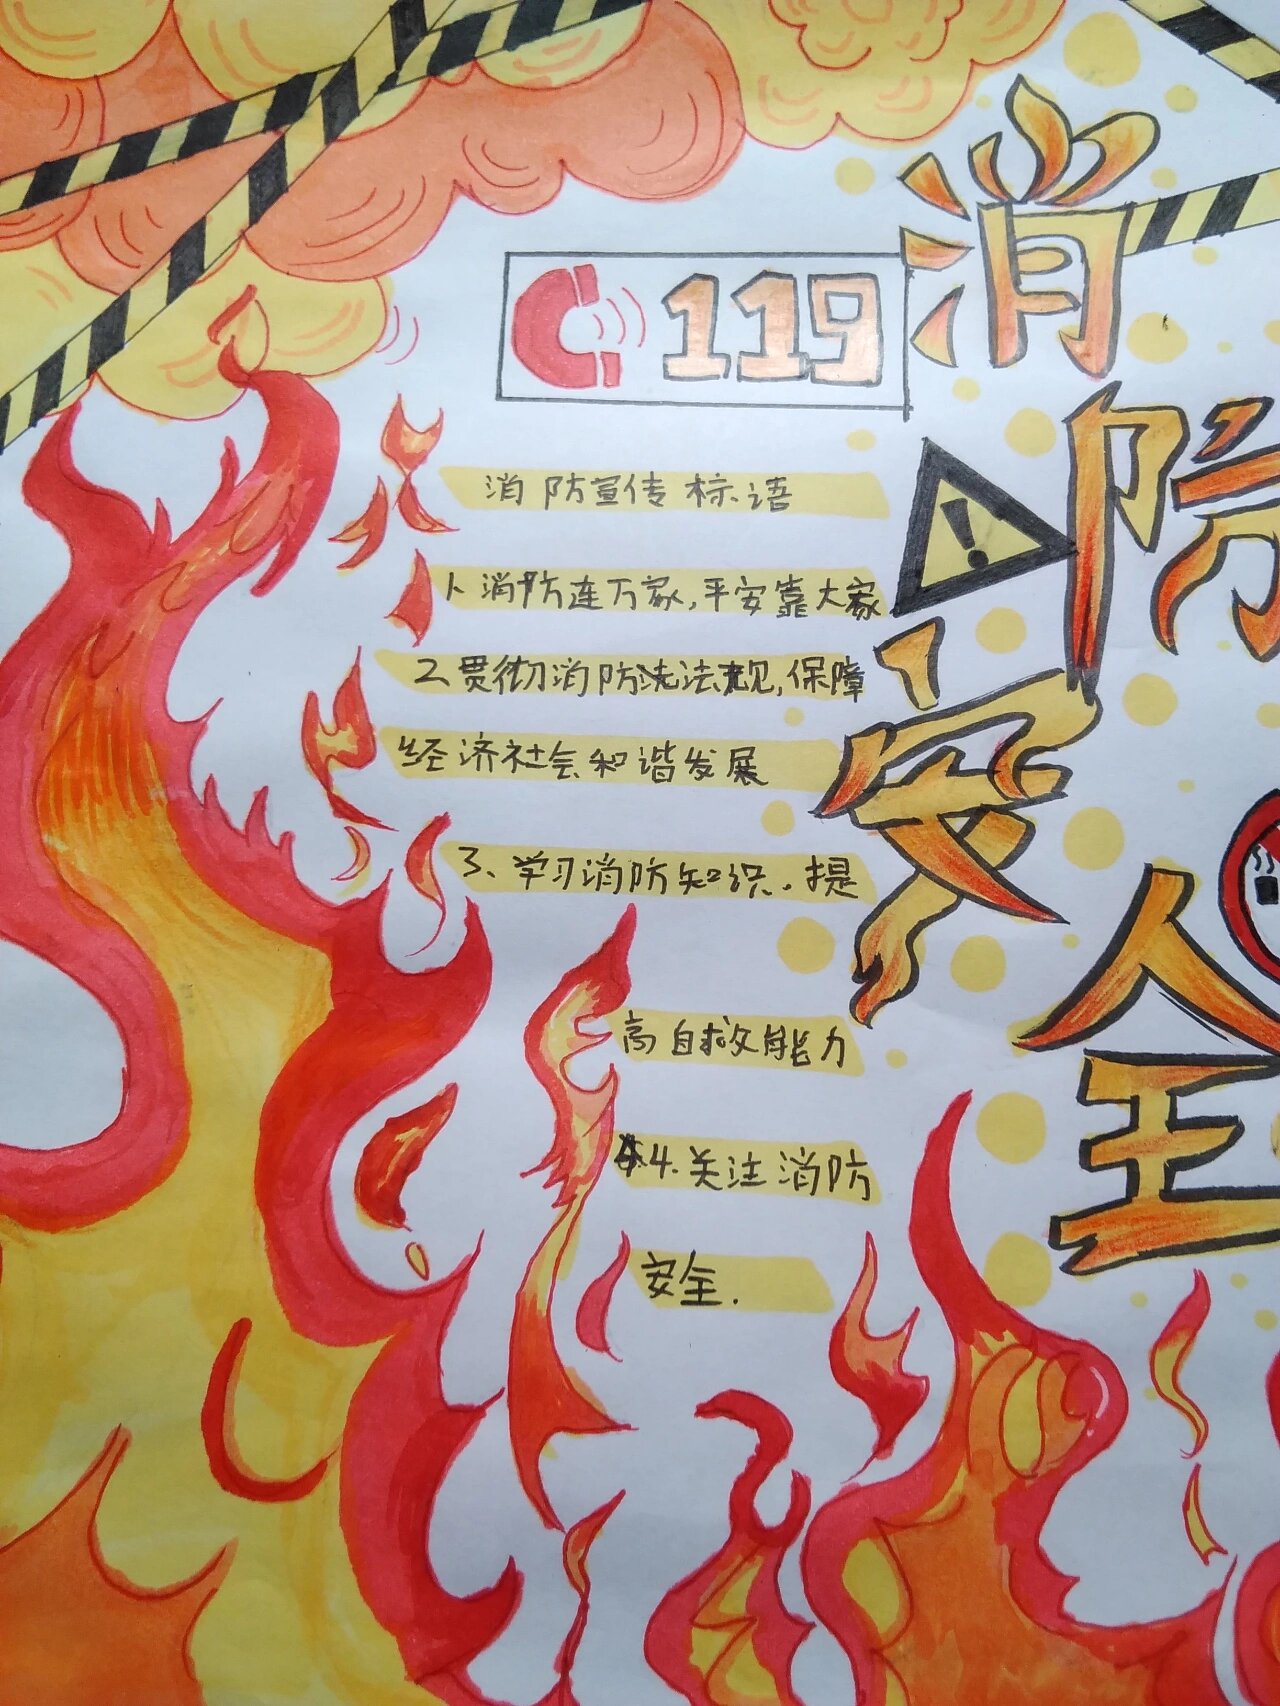 119
消防安全
消防宣传标语
1、消防连万家,平安靠大家
2.贯彻消防法规,保障
经济社会和谐发展
3、学习消防知识,提
高自救能力
4.关注消防
安全.